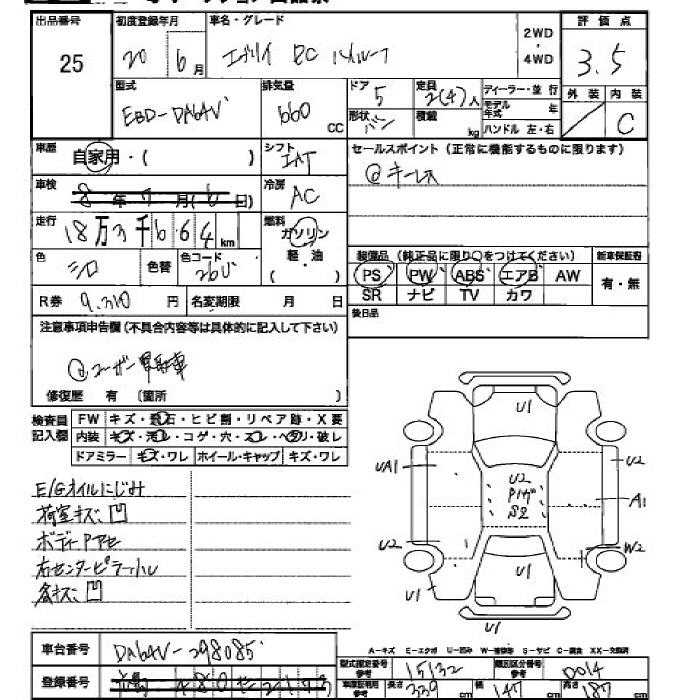 出品番号 初度登録年月 車名・グレード 2WD・4WD 評価点
25 20 6月 エブリイ PC ハイルーフ 3.5
型式 排気量 ドア 定員 ディーラー・並行 外装 内装
EBD-DA64V 660 CC 5 2(4)人 モデル年式 年
形状 バン 積載 kg ハンドル 左・右 C
車歴 自家用・( ) シフト IAT セールスポイント (正常に機能するものに限ります)
車検 8年7月(6日) 冷房 AC @キーレス
走行 18万3千664km 燃料 ガソリン 軽・油 ( )
色 シロ 色替 色コード 26U 装備品 (純正品に限り○をつけてください) 新車保証書
PS PW ABS エアB AW 有・無
R券 9.310円 名変期限 月 日 SR ナビ TV カワ
注意事項申告欄 (不具合内容等は具体的に記入して下さい) 後日品
@ユーザー買取車
修復歴 有 〔箇所 〕
検査員記入欄 FW キズ・飛石・ヒビ割・リペア跡・X要
内装 キズ・汚レ・コゲ・穴・スレ・ヘタリ・破レ
ドアミラー キズ・ワレ ホイール・キャップ キズ・ワレ
E/Gオイルにじみ
荷室キズ、凹
ボディPアセ
右センターピラーナルシ
各キズ、凹
U1
UA1 U2 U2
Pハゲ A1
S2
U2 W2
U1 U1
U1
A-キズ E-エクボ U-凹み W-補修等 S-サビ C-腐食 XX-交換済
車台番号 DA64V-298085 型式指定番号 参考 15132 類別区分番号 参考 0014
登録番号 480 せ 2173 車庫証明用 参考 長さ 339cm 幅 147cm 高さ 187cm